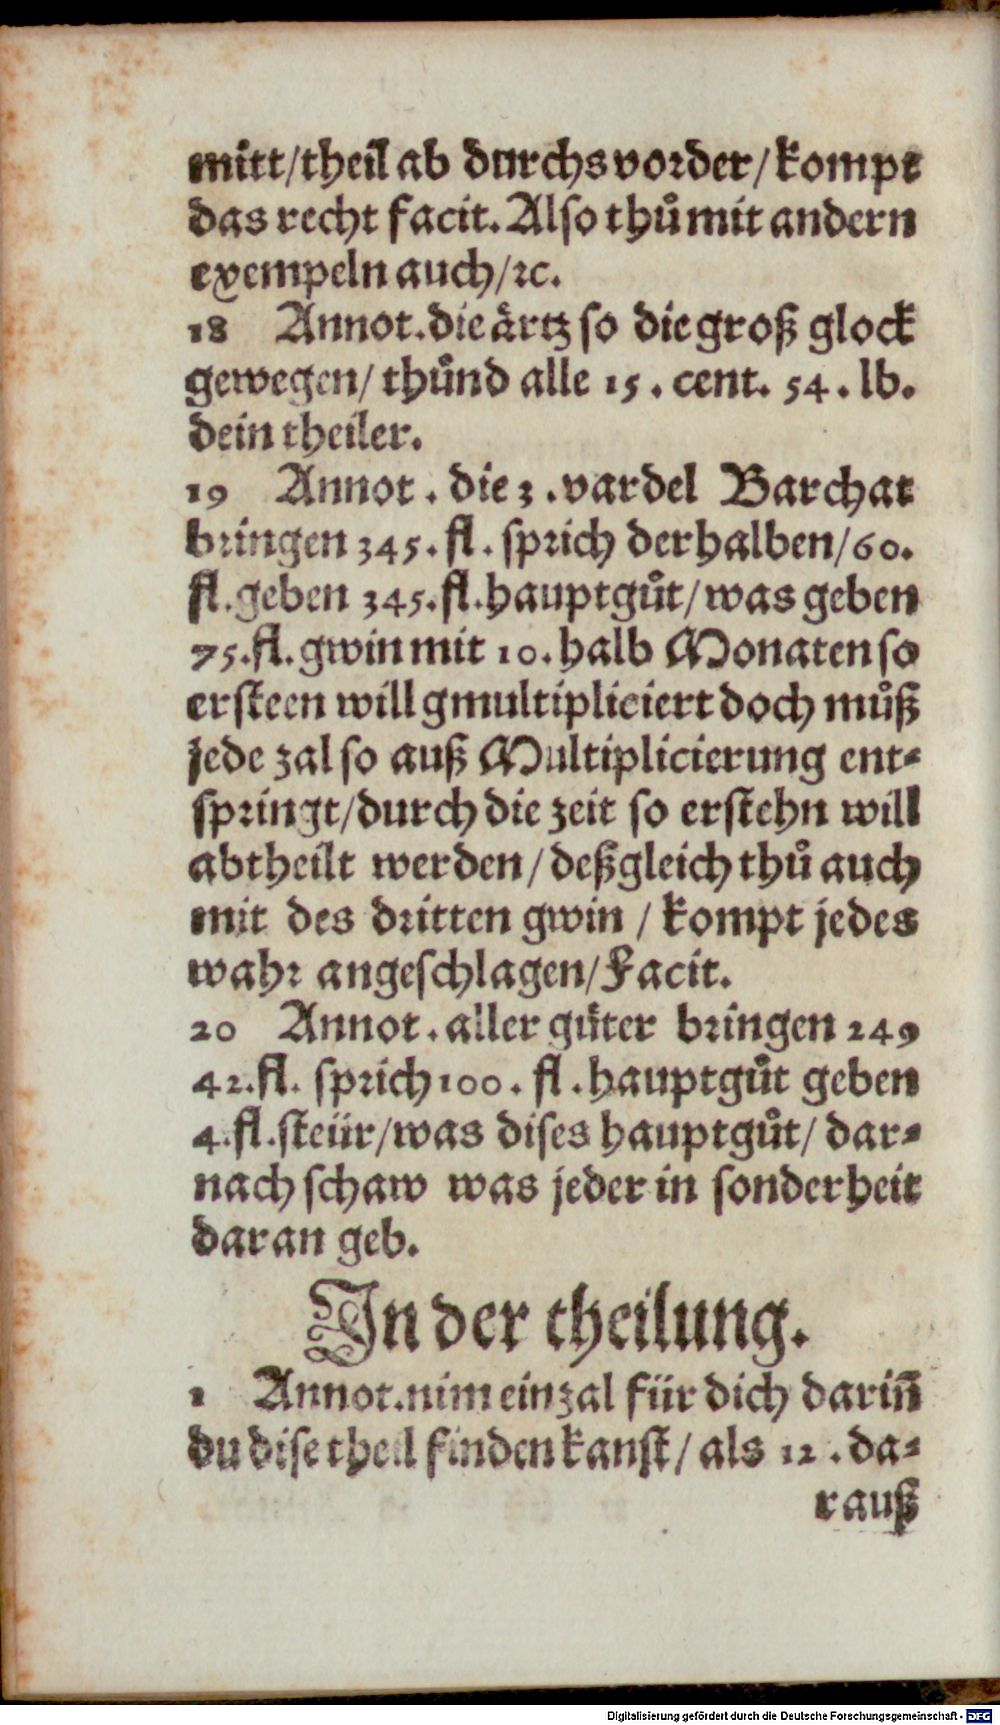 mitt/theil ab durchs vorder/kompt
das recht facit. Also thuͦ mit andern
exempeln auch/ꝛc.
18 Annot. die aͤrtz so die groß glock
gewegen/ thuͦnd alle 15. cent. 54. lb.
dein theiler.
19 Annot. die 3. vardel Barchat
bringen 345. fl. sprich derhalben/60.
fl. geben 345. fl. hauptguͦt/ was geben
75. fl. gwin mit 10. halb Monaten so
ersteen will gmultipliciert doch muͦß
jede zal so auß Multiplicierung ent⸗
springt/durch die zeit so erstehn will
abtheilt werden/deßgleich thuͦ auch
mit des dritten gwin / kompt jedes
wahr angeschlagen/Facit.
20 Annot. aller guͤter bringen 249
42. fl. sprich 100. fl. hauptguͦt geben
4. fl. steür/was dises hauptguͦt/ dar⸗
nach schaw was jeder in sonderheit
daran geb.
In der theilung.
1 Annot. nim ein zal für dich dariñ
du dise theil finden kanst/ als 12. da⸗
rauß
Digitalisierung gefördert durch die Deutsche Forschungsgemeinschaft - DFG